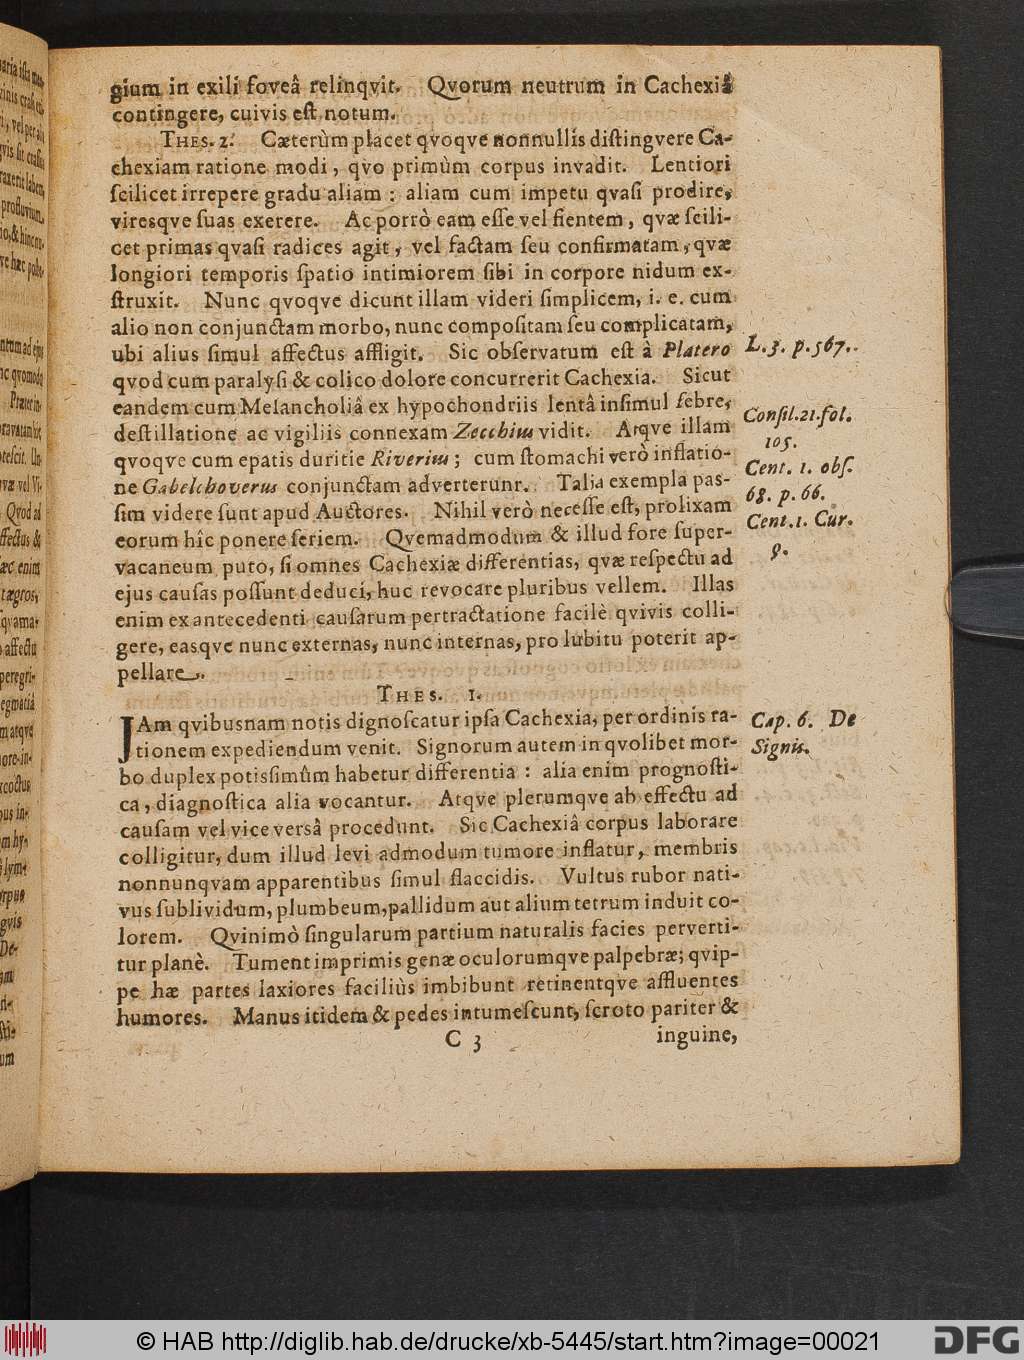 gium in exili foveâ relinqvit. Qvorum neutrum in Cachexiâ
contingere, cuivis est notum.
THES. 2. Cæterùm placet qvoqve nonnullis distingvere Ca-
chexiam ratione modi, qvo primùm corpus invadit. Lentiori
scilicet irrepere gradu aliam : aliam cum impetu qvasi prodire,
viresqve suas exerere. Ac porrò eam esse vel fientem, qvæ scili-
cet primas qvasi radices agit, vel factam seu confirmatam, qvæ
longiori temporis spatio intimiorem sibi in corpore nidum ex-
struxit. Nunc qvoqve dicunt illam videri simplicem, i. e. cum
alio non conjunctam morbo, nunc compositam seu complicatam,
ubi alius simul affectus affligit. Sic observatum est à Platero
L. 3. p. 567.
qvod cum paralysi & colico dolore concurrerit Cachexia. Sicut
eandem cum Melancholiâ ex hypochondriis lentâ insimul febre,
Consil. 21. fol.
105.
destillatione ac vigiliis connexam Zecchius vidit. Atqve illam
qvoqve cum epatis duritie Riverius ; cum stomachi verò inflatio-
Cent. 1. obs.
68. p. 66.
ne Gabelchoverus conjunctam adverterunt. Talia exempla pas-
sim videre sunt apud Auctores. Nihil verò necesse est, prolixam
Cent. 1. Cur.
9.
eorum hîc ponere seriem. Qvemadmodum & illud fore super-
vacaneum puto, si omnes Cachexiæ differentias, qvæ respectu ad
ejus causas possunt deduci, huc revocare pluribus vellem. Illas
enim ex antecedenti causarum pertractatione facilè qvivis colli-
gere, easqve nunc externas, nunc internas, pro lubitu poterit ap-
pellare.
THES. 1.
JAm qvibusnam notis dignoscatur ipsa Cachexia, per ordinis ra-
Cap. 6. De
Signis.
tionem expediendum venit. Signorum autem in qvolibet mor-
bo duplex potissimûm habetur differentia : alia enim prognosti-
ca, diagnostica alia vocantur. Atqve plerumqve ab effectu ad
causam vel vice versâ procedunt. Sic Cachexiâ corpus laborare
colligitur, dum illud levi admodum tumore inflatur, membris
nonnunqvam apparentibus simul flaccidis. Vultus rubor nati-
vus sublividum, plumbeum, pallidum aut alium tetrum induit co-
lorem. Qvinimò singularum partium naturalis facies perverti-
tur planè. Tument imprimis genæ oculorumqve palpebræ; qvip-
pe hæ partes laxiores faciliùs imbibunt retinentqve affluentes
humores. Manus itidem & pedes intumescunt, scroto pariter &
C 3
inguine,
© HAB http://diglib.hab.de/drucke/xb-5445/start.htm?image=00021
DFG